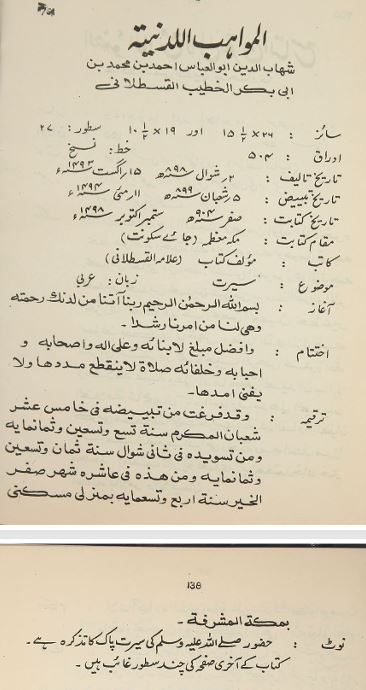 المواهب اللدنية
شهاب الدین ابوالعباس احمد بن محمد بن
ابی بکر الخطیب القسطلانی
سائز : ۲۶ × ۱۵ ۱/۲ اور ۱۹ × ۱۰ ۱/۲ سطور : ۲۷
اوراق : ۵۰۴ خط : نسخ
تاریخ تالیف : ۲ ر شوال ۸۹۸ھ ۱۵ ر اگست ۱۴۹۳ء
تاریخ تبییض : ۵ ر شعبان ۸۹۹ھ ۱۱ ر مئی ۱۴۹۴ء
تاریخ کتابت : صفر ۹۰۴ھ ستمبر اکتوبر ۱۴۹۸ء
مقام کتابت : مکہ معظمہ (جائے سکونت)
کاتب : مؤلف کتاب (علامہ القسطلانی)
موضوع : سیرت زبان : عربی
آغاز : بسم الله الرحمٰن الرحیم ربنا آتنا من لدنك رحمته
وهی لنا من امرنا رشدا ـ
اختتام : وافضل مبلغ لابنائه وعلی اله واصحابه و
احبابه وخلفائه صلاة لاینقطع مددها ولا
یفنی امدها ـ
ترقیمہ : وقد فرغت من تبییضه فی خامس عشر
شعبان المکرم سنة تسع وتسعین وثمانمایه
ومن تسویده فی ثانی شوال سنة ثمان وتسعین
وثمانمایه ومن هذه فی عاشره شهر صفر
الخیر سنة اربع وتسعمایه بمنزلی مسکنی
138
بمکة المشرفة ـ
نوٹ : حضور صلے اللہ علیہ وسلم کی سیرت پاک کا تذکرہ ہے ۔
کتاب کے آخری صفحہ کی چند سطور غائب ہیں ۔